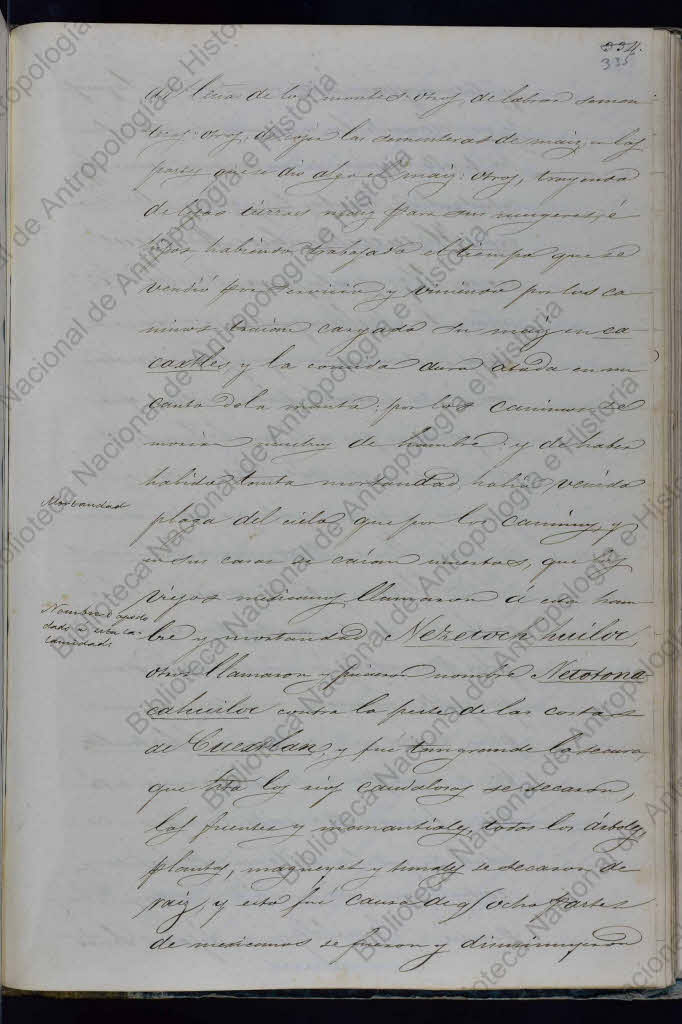 334.
335
de leñas de los montes: otros de labrar semen
teras: otros, de cojer las sementeras de maiz, en las
partes que se dio algo el maiz: otros, trayendo
de tierras maiz para sus mugeres, é
hijos habiendo trabajado el tiempo que se
vendió por servicio, y viniendo por los ca-
minos traian cargado su maiz en ca-
caxtles, y la comida dura atada en un
canto de la manta: por los caminos se
morian muchos de hambre: y de haber
habido tanta mortandad, habia venido
Mortandad
plaga del cielo que por los caminos, y
en sus casas se caian muertos, que los
viejos mexicanos llamaron á esta ham-
Nombre q.
dado á esta ca-
lamidad:
bre y mortandad Nezetochhuiloc,
otros llamaron y pusieron nombre Netotona
cahuiloc contra la peste de las costas
de Cuextlan, y fué tan grande la secura,
que los rios caudalosos se secaron,
las fuentes y manantiales, todos los árboles,
plantas, magueyes y tunales se secaron de
raiz, y esto fué causa de q. ocho partes
de mexicanos se fueron y disminuyeron
Biblioteca Nacional de Antropología e Historia